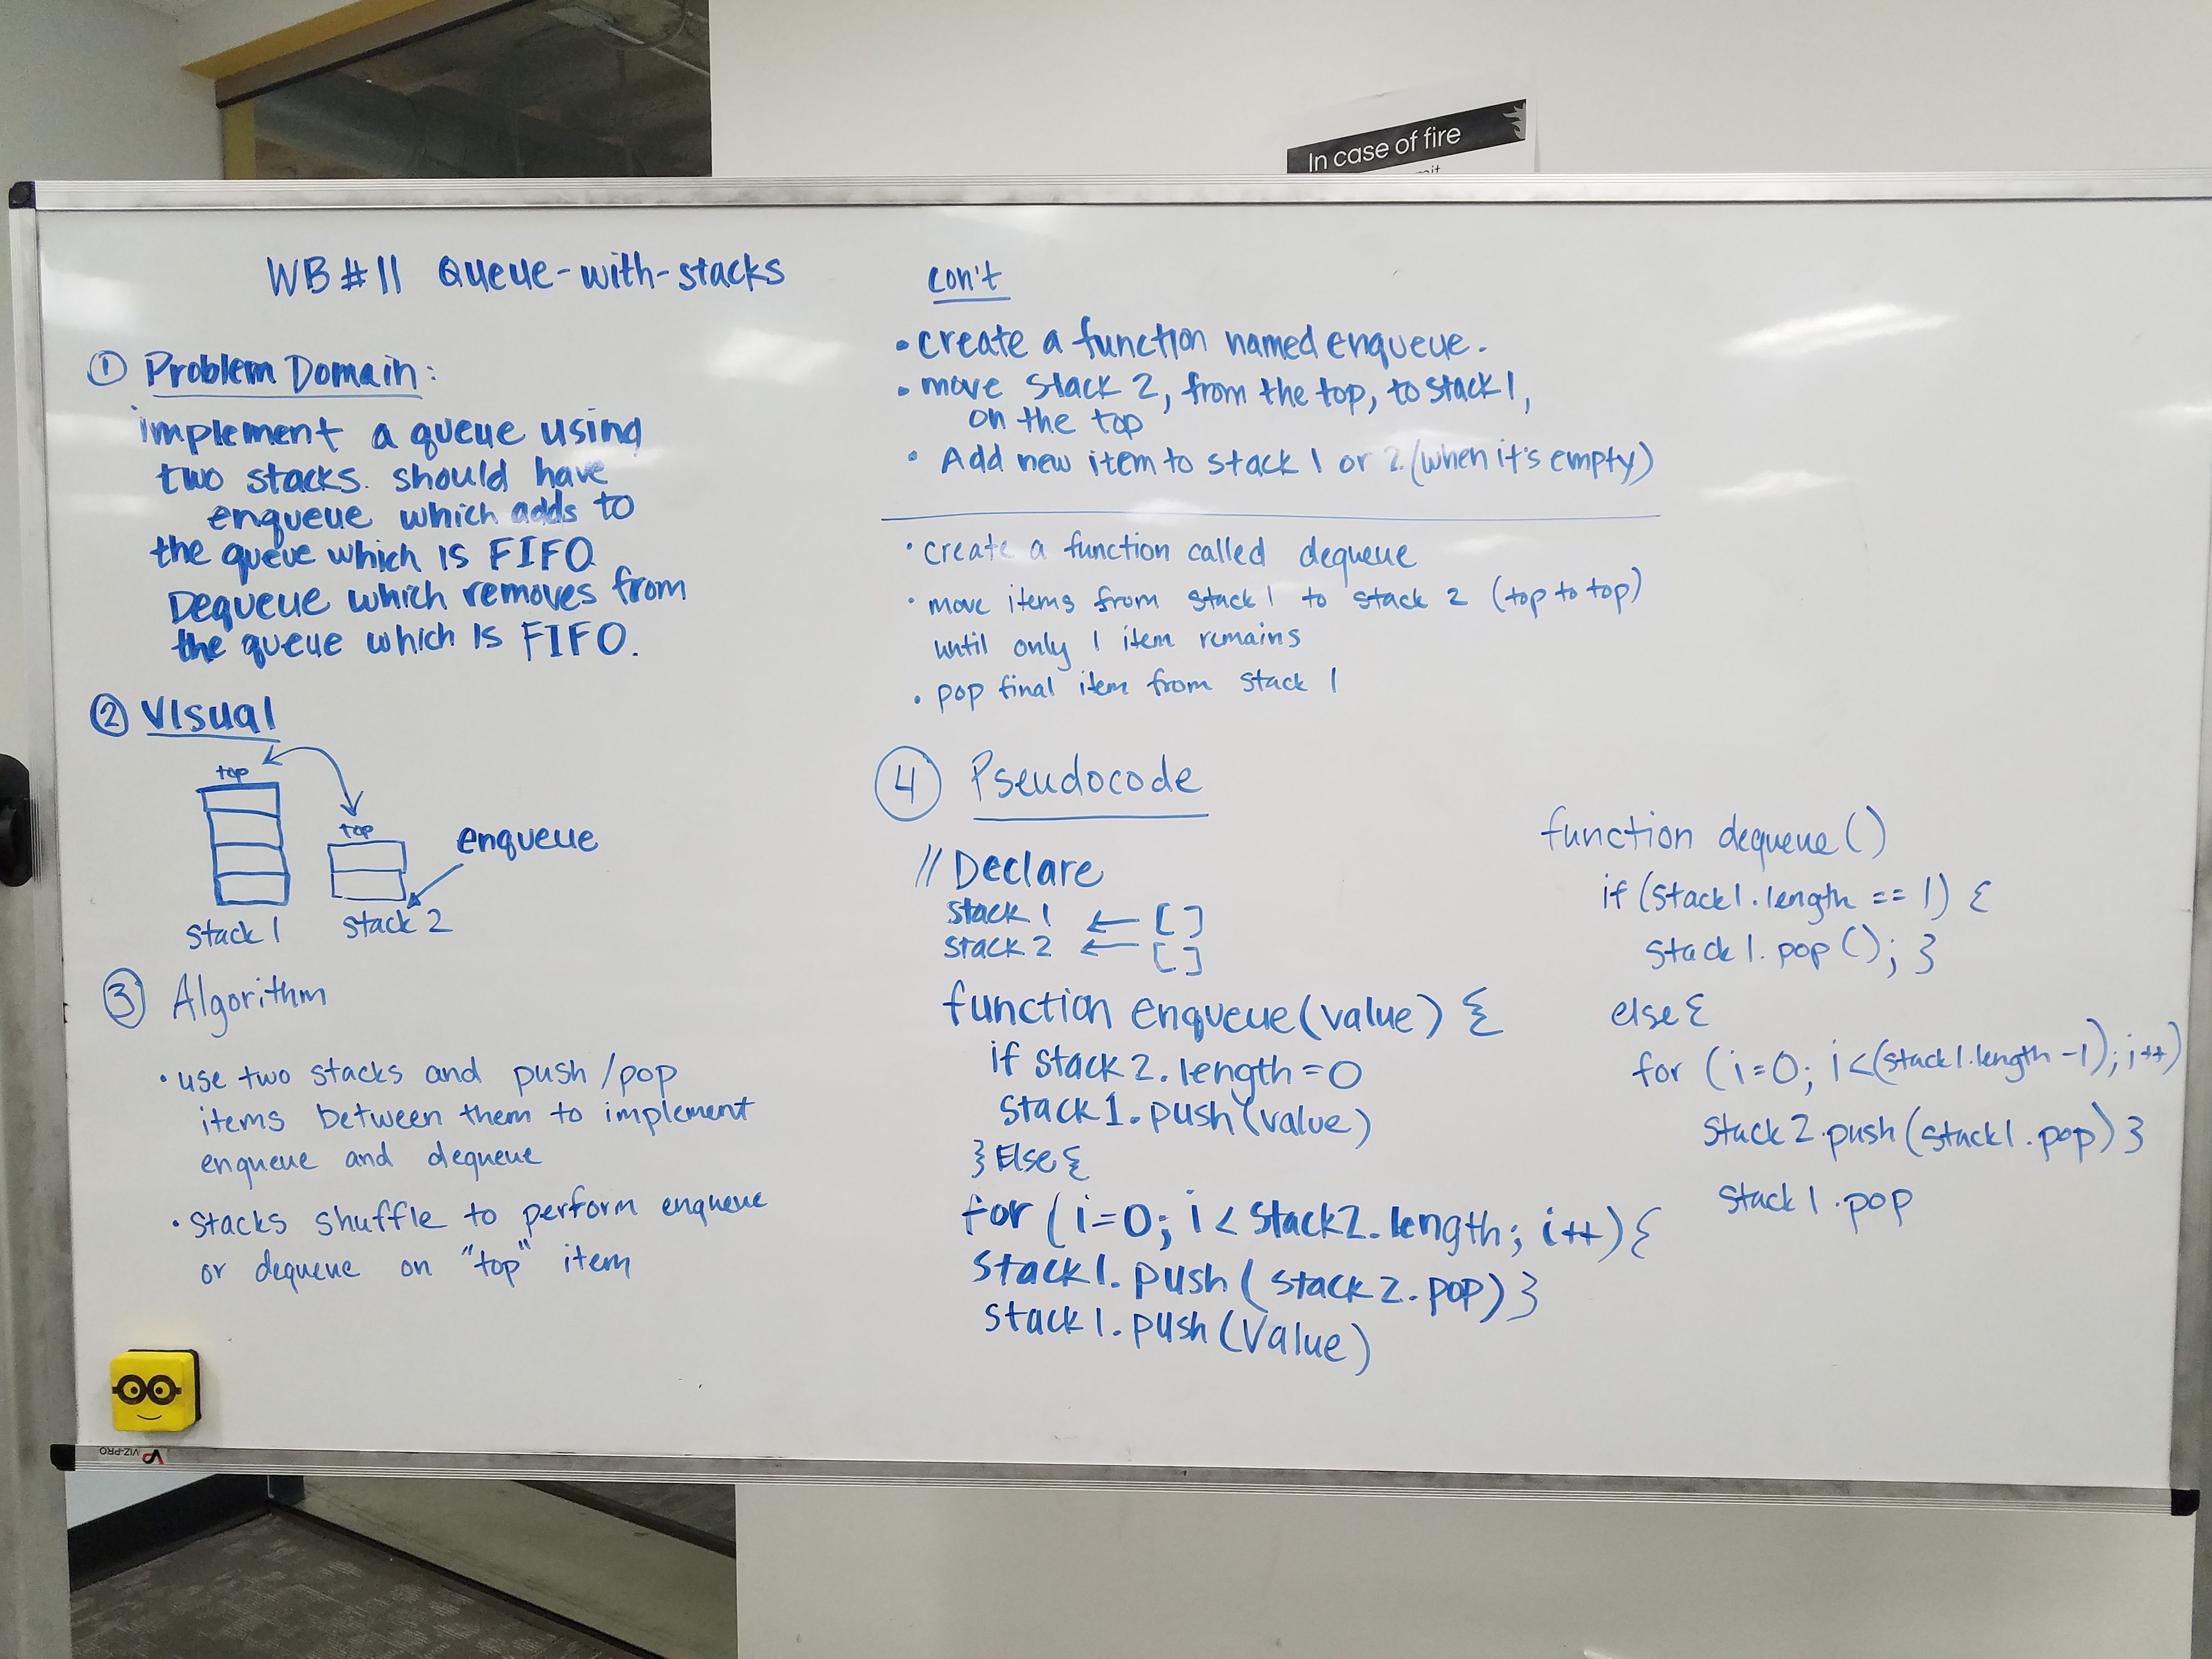 In case of fire
WB #11 Queue-with-stacks
① Problem Domain:
implement a queue using
two stacks. should have
enqueue which adds to
the queue which is FIFO
Dequeue which removes from
the queue which is FIFO.
② Visual
top
top
enqueue
stack 1
stack 2
③ Algorithm
• use two stacks and push/pop
items between them to implement
enqueue and dequeue
• stacks shuffle to perform enqueue
or dequeue on "top" item
con't
• create a function named enqueue.
• move stack 2, from the top, to stack 1,
on the top
• Add new item to stack 1 or 2 (when it's empty)
• create a function called dequeue
• move items from stack 1 to stack 2 (top to top)
until only 1 item remains
• pop final item from stack 1
④ Pseudocode
// Declare
stack 1 ← [ ]
stack 2 ← [ ]
function enqueue(value) {
if stack 2.length = 0
stack 1.push(value)
} Else {
for (i=0; i < stack2.length; i++) {
stack1.push(stack2.pop) }
stack1.push(Value)
function dequeue()
if (stack1.length == 1) {
stack1.pop(); }
else {
for (i=0; i<(stack1.length -1); i++)
stack2.push(stack1.pop) }
stack1.pop
VIZ-PRO